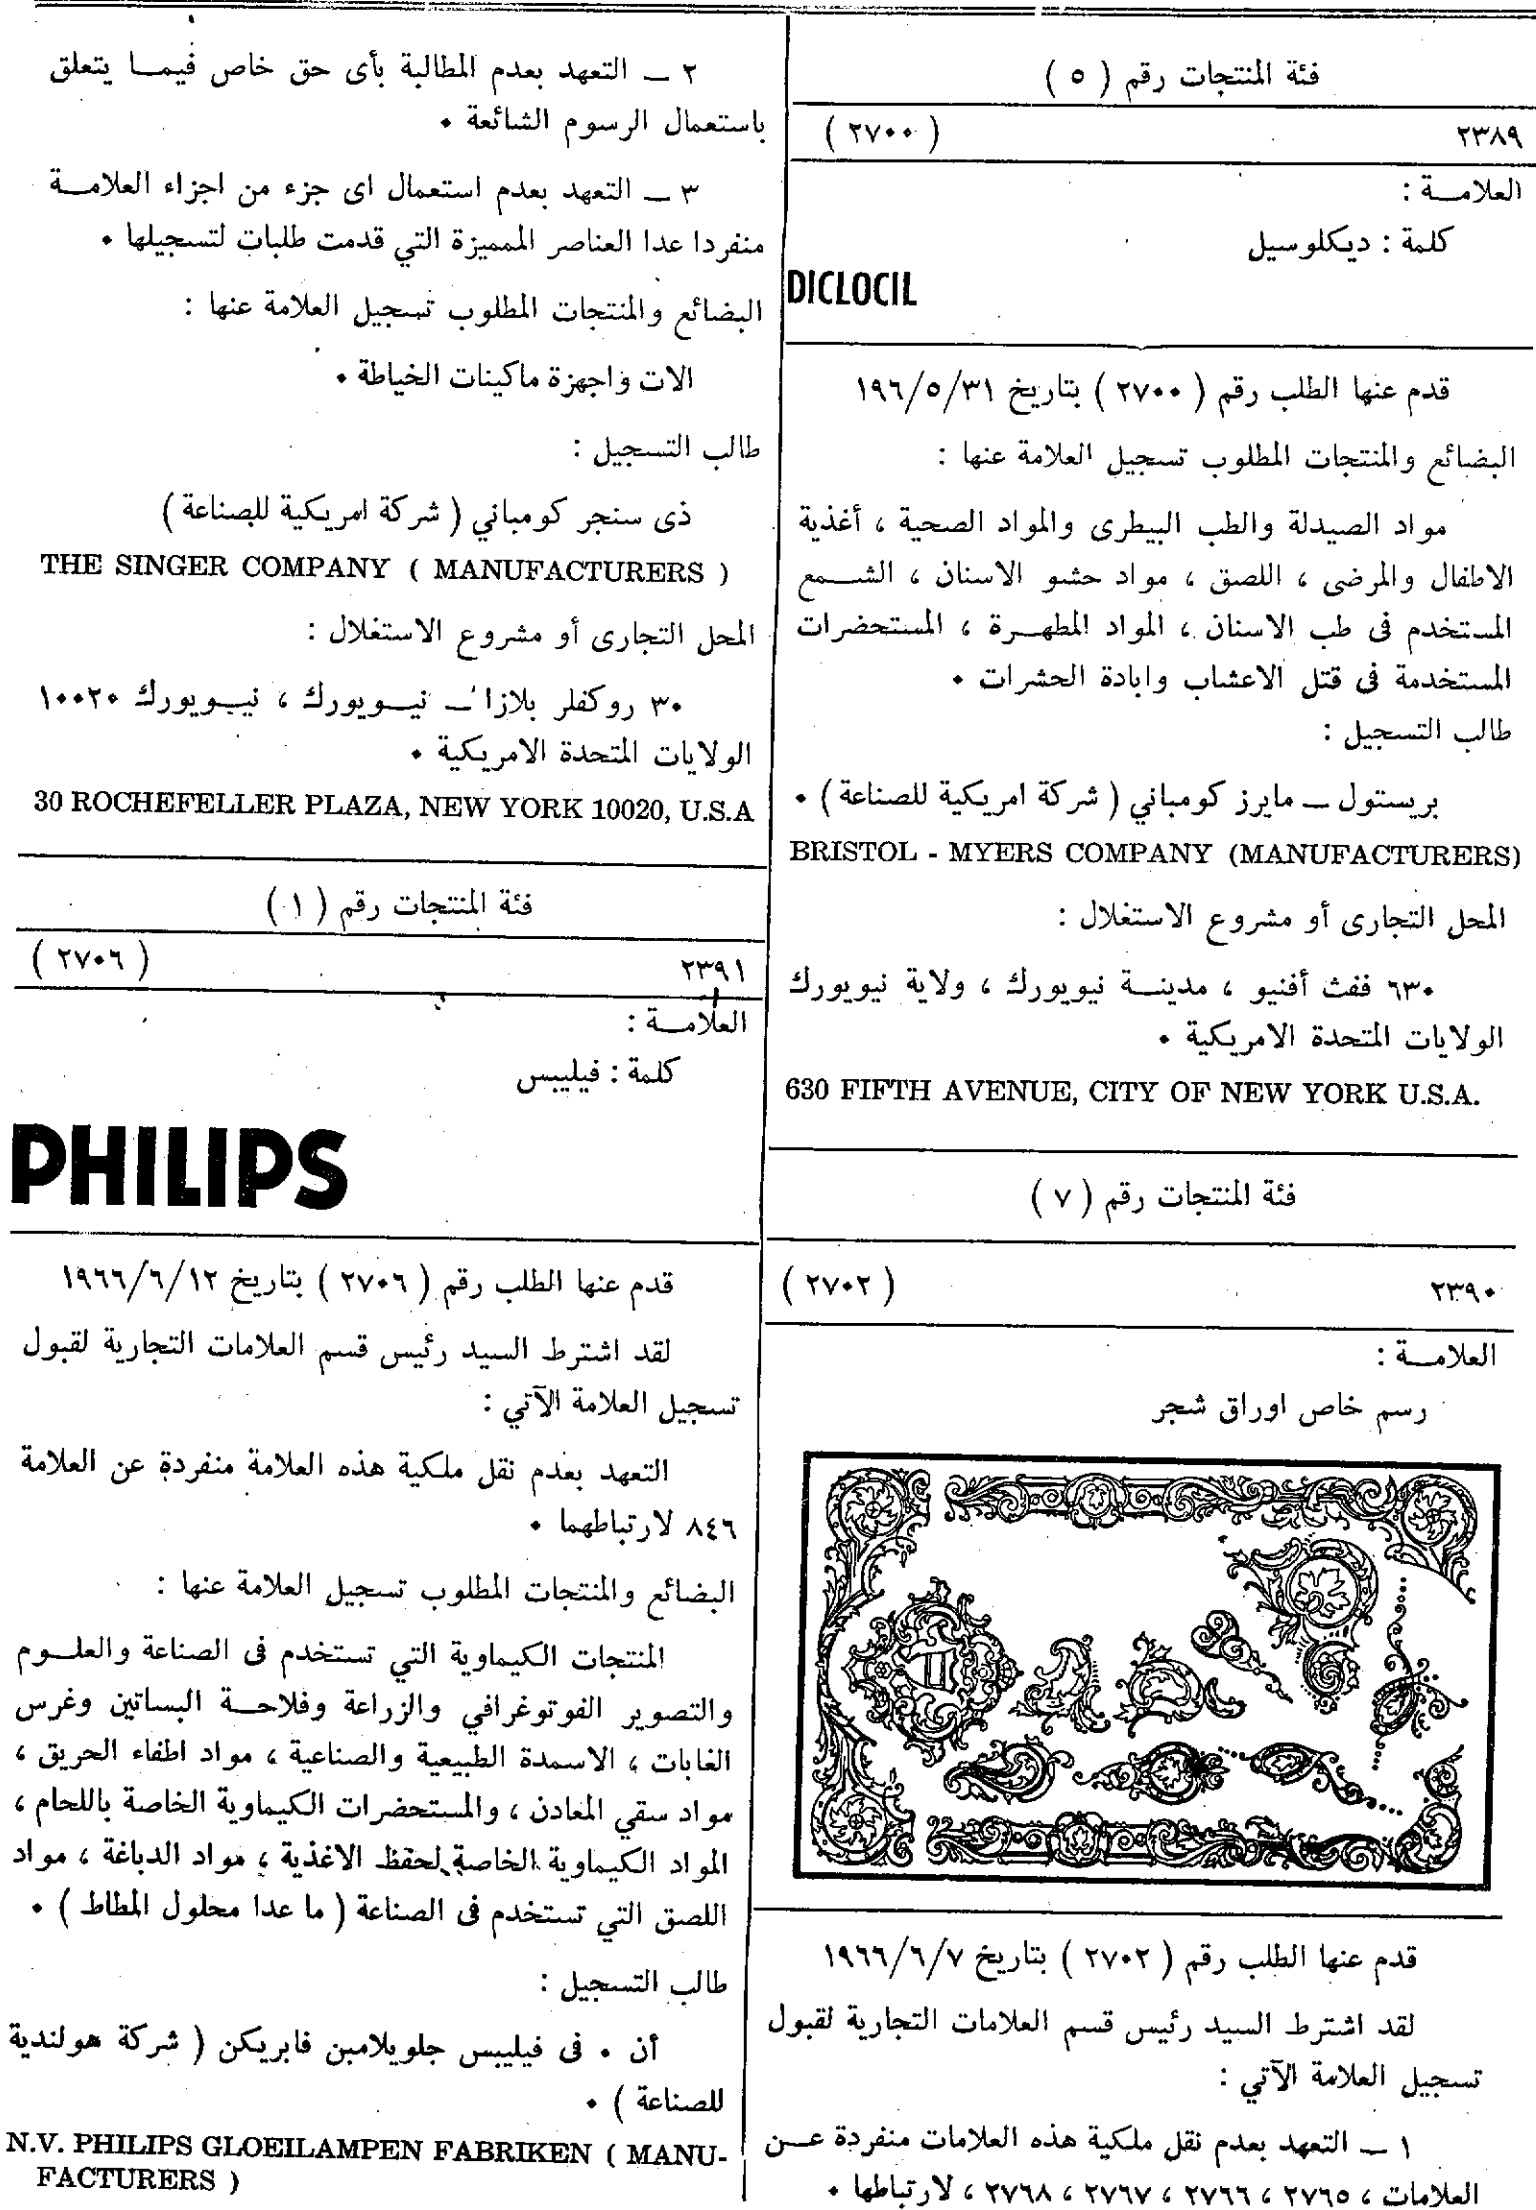 فئة المنتجات رقم ( ٥ )
٢٣٨٩ ( ٢٧٠٠ )
العلامـــة :
كلمة : ديكلوسيل
DICLOCIL
قدم عنها الطلب رقم ( ٢٧٠٠ ) بتاريخ ١٩٦/٥/٣١
البضائع والمنتجات المطلوب تسجيل العلامة عنها :
مواد الصيدلة والطب البيطرى والمواد الصحية ، أغذية
الاطفال والمرضى ، اللصق ، مواد حشو الاسنان ، الشـــمع
المستخدم فى طب الاسنان ، المواد المطهـــرة ، المستحضرات
المستخدمة فى قتل الاعشاب وابادة الحشرات .
طالب التسجيل :
بريستول — مايرز كومباني ( شركة امريكية للصناعة ) .
BRISTOL - MYERS COMPANY (MANUFACTURERS)
المحل التجارى أو مشروع الاستغلال :
٦٣٠ ففث أفنيو ، مدينـــة نيويورك ، ولاية نيويورك
الولايات المتحدة الامريكية .
630 FIFTH AVENUE, CITY OF NEW YORK U.S.A.
فئة المنتجات رقم ( ٧ )
٢٣٩٠ ( ٢٧٠٢ )
العلامـــة :
رسم خاص اوراق شجر
قدم عنها الطلب رقم ( ٢٧٠٢ ) بتاريخ ١٩٦٦/٦/٧
لقد اشترط السيد رئيس قسم العلامات التجارية لقبول
تسجيل العلامة الآتي :
١ — التعهد بعدم نقل ملكية هذه العلامات منفردة عـــن
العلامات ، ٢٧٦٥ ، ٢٧٦٦ ، ٢٧٦٧ ، ٢٧٦٨ ، لارتباطها .
٢ — التعهد بعدم المطالبة بأى حق خاص فيمـــا يتعلق
باستعمال الرسوم الشائعة .
٣ — التعهد بعدم استعمال اى جزء من اجزاء العلامـــة
منفردا عدا العناصر المميزة التي قدمت طلبات لتسجيلها .
البضائع والمنتجات المطلوب تسجيل العلامة عنها :
الات واجهزة ماكينات الخياطة .
طالب التسجيل :
ذى سنجر كومباني ( شركة امريكية للصناعة )
THE SINGER COMPANY ( MANUFACTURERS )
المحل التجارى أو مشروع الاستغلال :
٣٠ روكفلر بلازا — نيـــويورك ، نيـــويورك ١٠٠٢٠
الولايات المتحدة الامريكية .
30 ROCHEFELLER PLAZA, NEW YORK 10020, U.S.A
فئة المنتجات رقم ( ١ )
٢٣٩١ ( ٢٧٠٦ )
العلامـــة :
كلمة : فيليبس
PHILIPS
قدم عنها الطلب رقم ( ٢٧٠٦ ) بتاريخ ١٩٦٦/٦/١٢
لقد اشترط السيد رئيس قسم العلامات التجارية لقبول
تسجيل العلامة الآتي :
التعهد بعدم نقل ملكية هذه العلامة منفردة عن العلامة
٨٤٦ لارتباطهما .
البضائع والمنتجات المطلوب تسجيل العلامة عنها :
المنتجات الكيماوية التي تستخدم فى الصناعة والعلـــوم
والتصوير الفوتوغرافي والزراعة وفلاحـــة البساتين وغرس
الغابات ، الاسمدة الطبيعية والصناعية ، مواد اطفاء الحريق ،
مواد سقي المعادن ، والمستحضرات الكيماوية الخاصة باللحام ،
المواد الكيماوية الخاصة لحفظ الاغذية ، مواد الدباغة ، مواد
اللصق التي تستخدم فى الصناعة ( ما عدا محلول المطاط ) .
طالب التسجيل :
أن . فى فيليبس جلويلامبن فابريكن ( شركة هولندية
للصناعة ) .
N.V. PHILIPS GLOEILAMPEN FABRIKEN ( MANU-
FACTURERS )